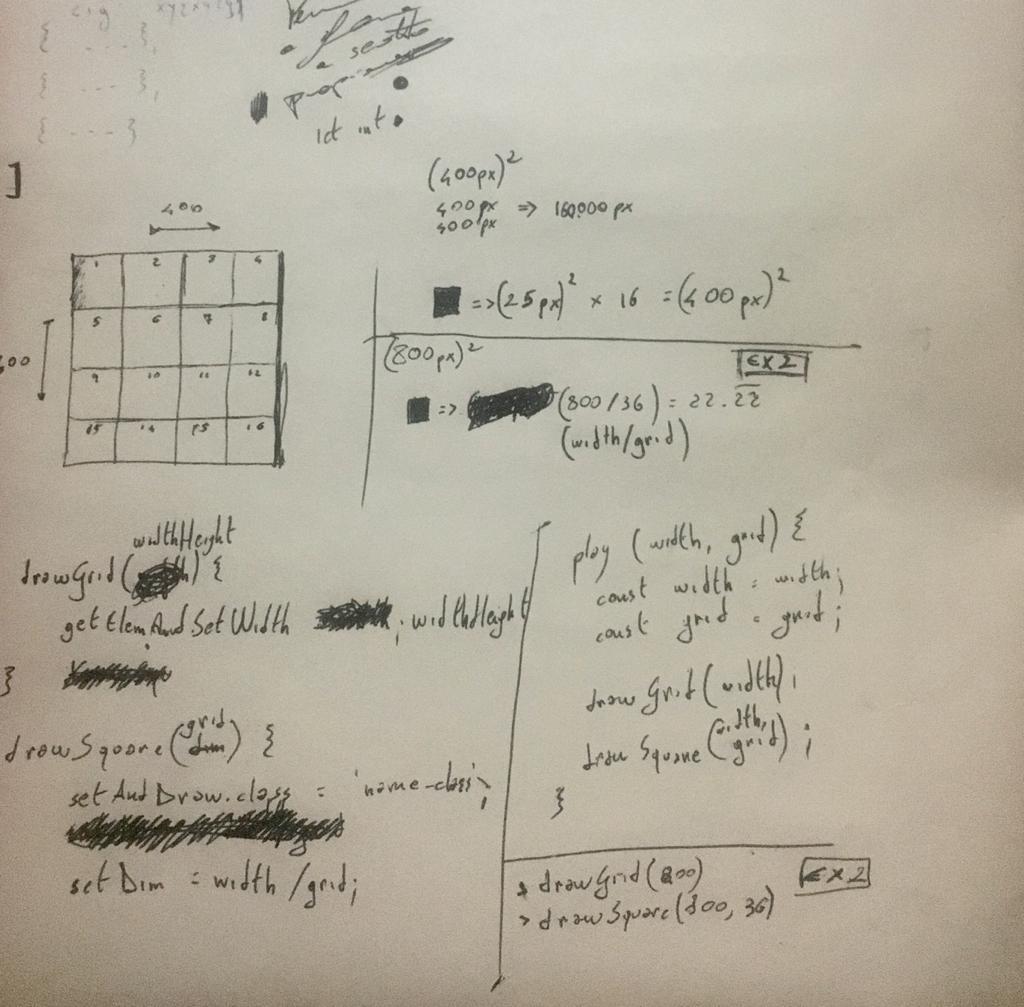 { ... },
{ --- },
{ --- }
]
1st int
(400px)²
400px => 160000 px
400px
400
1 2 3 4
5 6 7 8
9 10 11 12
13 14 15 16
=>(25px)² × 16 =(400px)²
(800px)²
EX 2
=> (800/36) = 22.22
(width/grid)
widthHeight
drawGrid( ) {
getElemAndSetWidth : widthHeight
}
drawSquare(grid dim) {
setAndDraw.class = 'name-class';
setDim = width /grid;
play (width, grid) {
const width = width;
const grid = grid;
drawGrid(width);
drawSquare(width, grid);
}
> drawGrid(800)
> drawSquare(800, 36)
EX 2